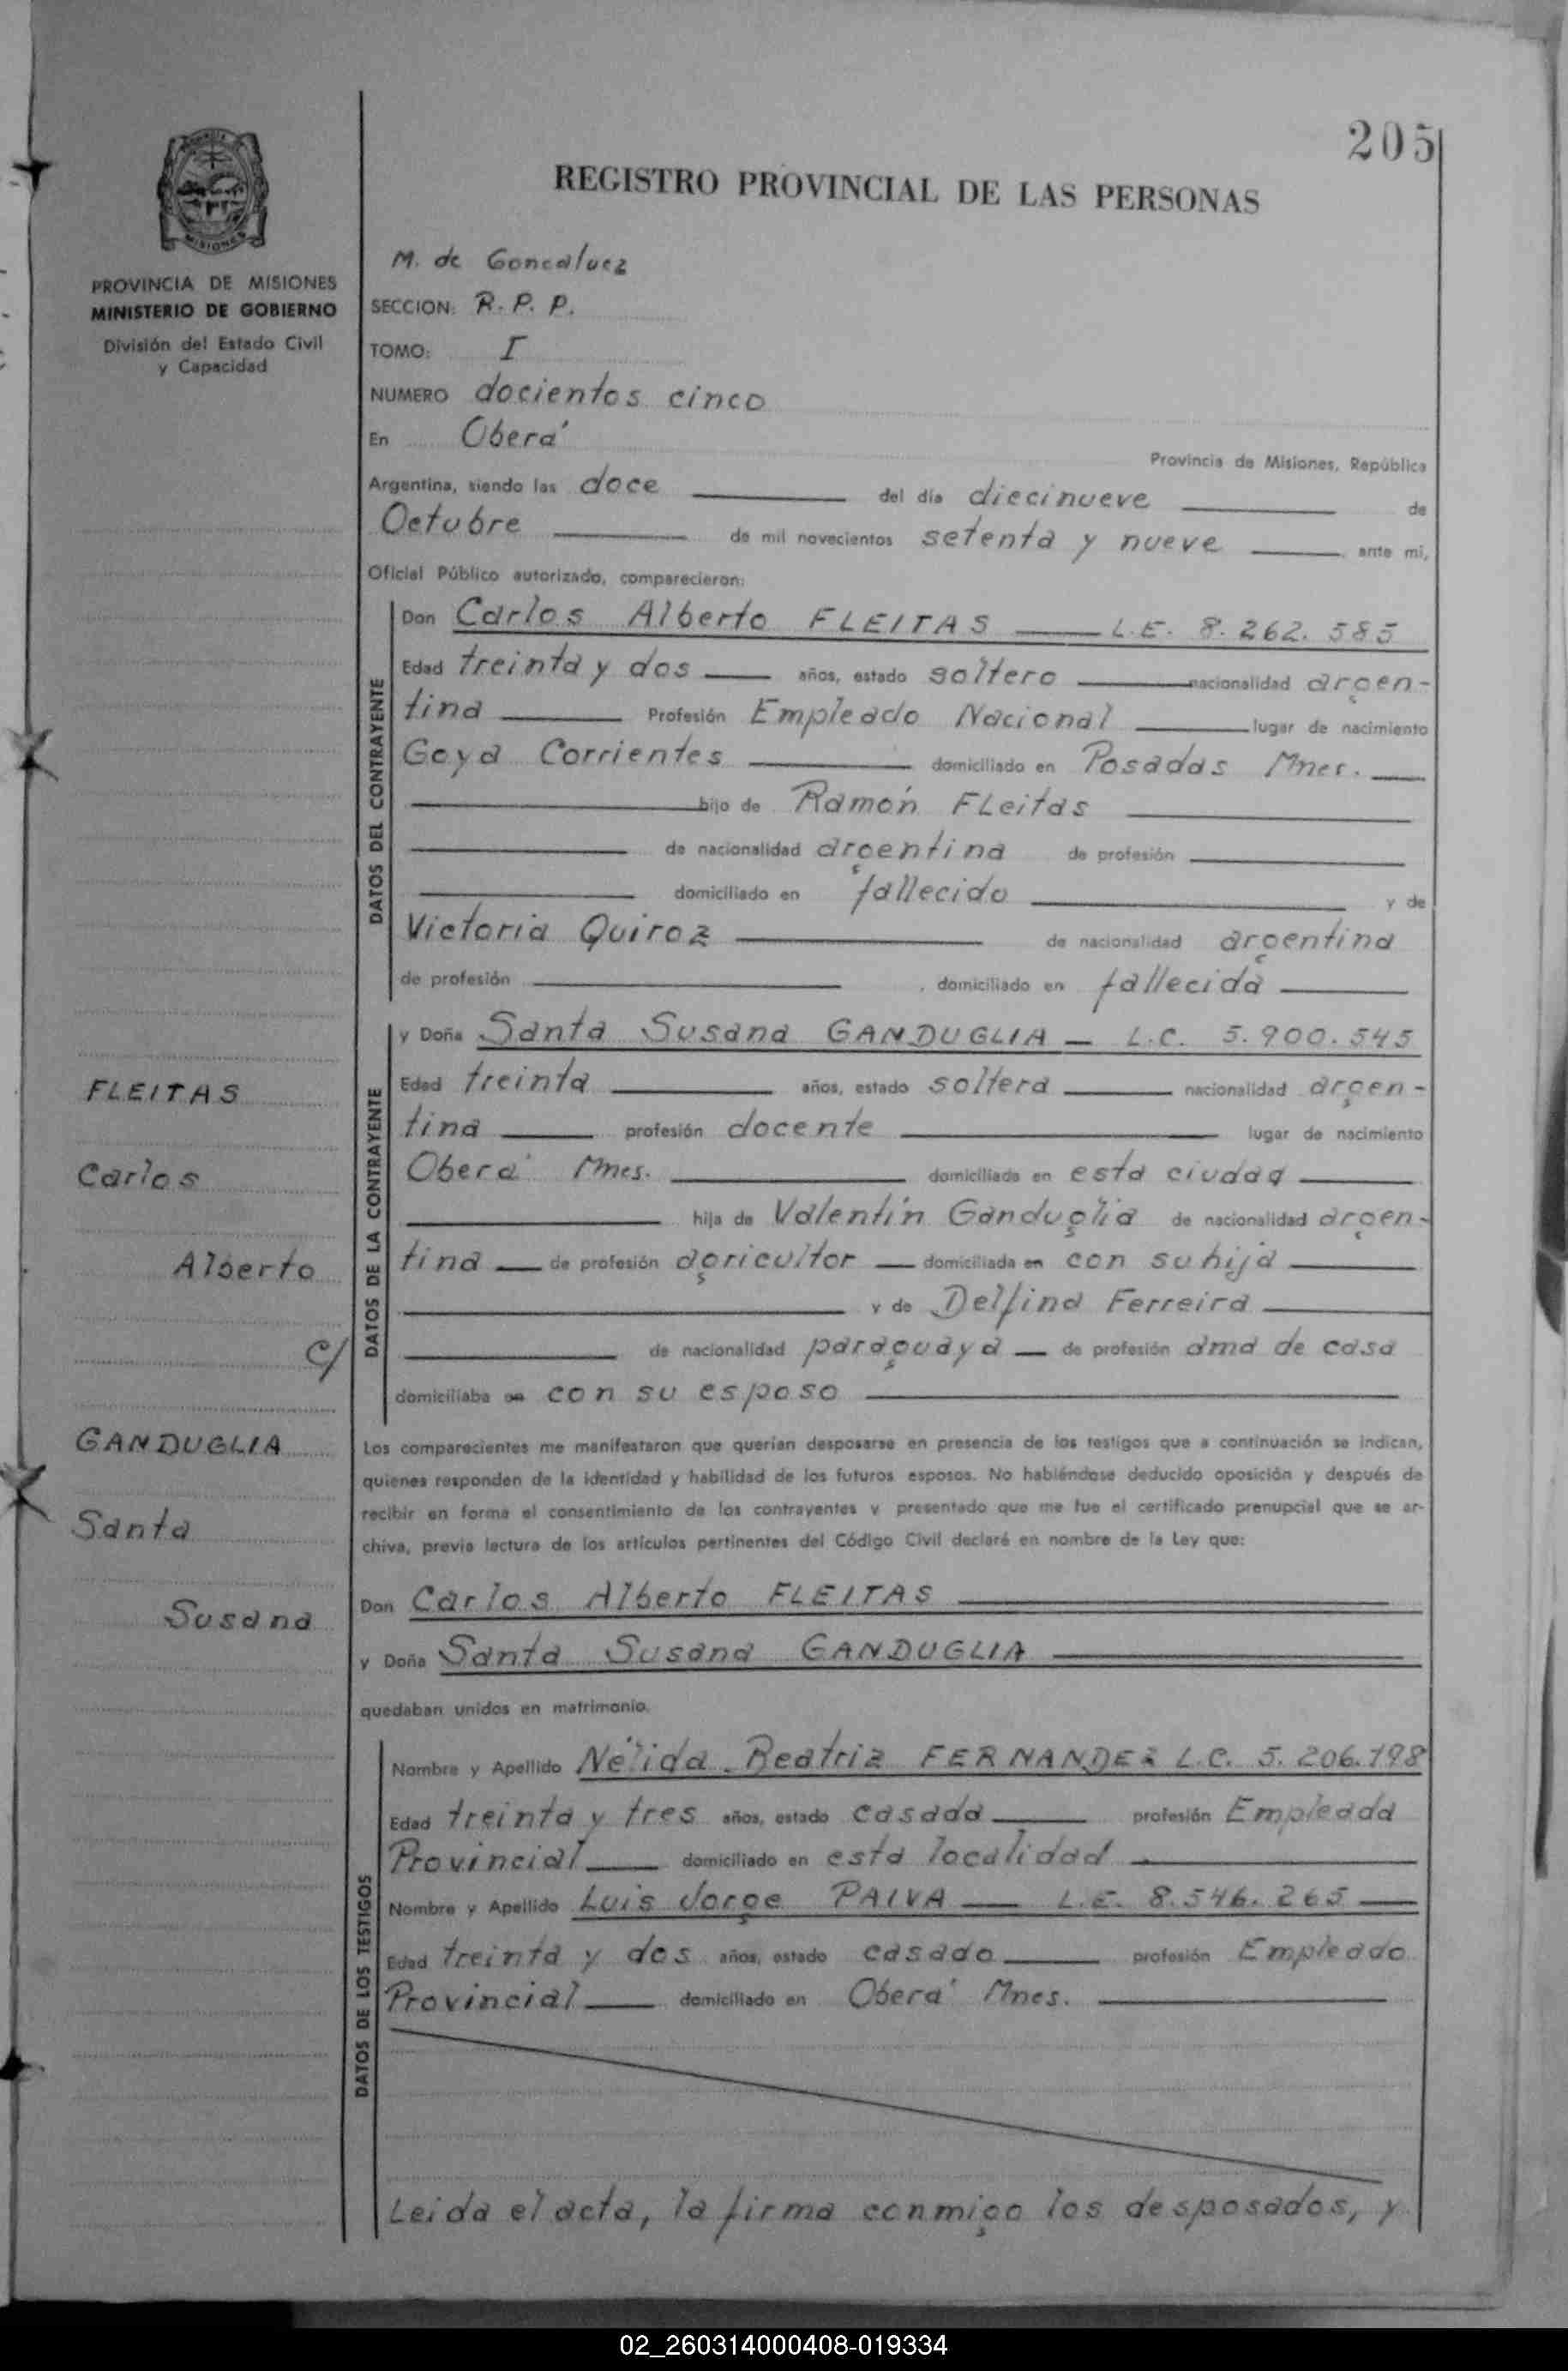 205
REGISTRO PROVINCIAL DE LAS PERSONAS
MISIONES
PROVINCIA DE MISIONES
MINISTERIO DE GOBIERNO
División del Estado Civil
y Capacidad
M. de Goncalvez
SECCION: R. P. P.
TOMO: I
NUMERO docientos cinco
En Oberá
Provincia de Misiones, República
Argentina, siendo las doce del día diecinueve de
Octubre de mil novecientos setenta y nueve ante mi,
Oficial Público autorizado, comparecieron:
DATOS DEL CONTRAYENTE
Don Carlos Alberto FLEITAS L.E. 8.262.585
Edad treinta y dos años, estado soltero nacionalidad argen-
tina Profesión Empleado Nacional lugar de nacimiento
Goya Corrientes domiciliado en Posadas Mnes.
hijo de Ramón FLeitas
de nacionalidad argentina de profesión
domiciliado en fallecido y de
Victoria Quiroz de nacionalidad argentina
de profesión , domiciliado en fallecida
DATOS DE LA CONTRAYENTE
y Doña Santa Susana GANDUGLIA L.C. 5.900.545
Edad treinta años, estado soltera nacionalidad argen-
tina profesión docente lugar de nacimiento
Oberá Mnes. domiciliada en esta ciudad
hija de Valentín Ganduglia de nacionalidad argen-
tina de profesión agricultor domiciliada en con su hija
y de Delfina Ferreira
de nacionalidad paraguaya de profesión ama de casa
domiciliaba en con su esposo
FLEITAS
Carlos
Alberto
c/
GANDUGLIA
Santa
Susana
Los comparecientes me manifestaron que querían desposarse en presencia de los testigos que a continuación se indican,
quienes responden de la identidad y habilidad de los futuros esposos. No habiéndose deducido oposición y después de
recibir en forma el consentimiento de los contrayentes y presentado que me fue el certificado prenupcial que se ar-
chiva, previa lectura de los artículos pertinentes del Código Civil declaré en nombre de la Ley que:
Don Carlos Alberto FLEITAS
y Doña Santa Susana GANDUGLIA
quedaban unidos en matrimonio.
DATOS DE LOS TESTIGOS
Nombre y Apellido Nélida Beatriz FERNANDEZ L.C. 5.206.198
Edad treinta y tres años, estado casada profesión Empleada
Provincial domiciliado en esta localidad
Nombre y Apellido Luis Jorge PAIVA L.E. 8.546.265
Edad treinta y dos años, estado casado profesión Empleado
Provincial domiciliado en Oberá Mnes.
Leida el acta, la firma conmigo los desposados, y
02_260314000408-019334